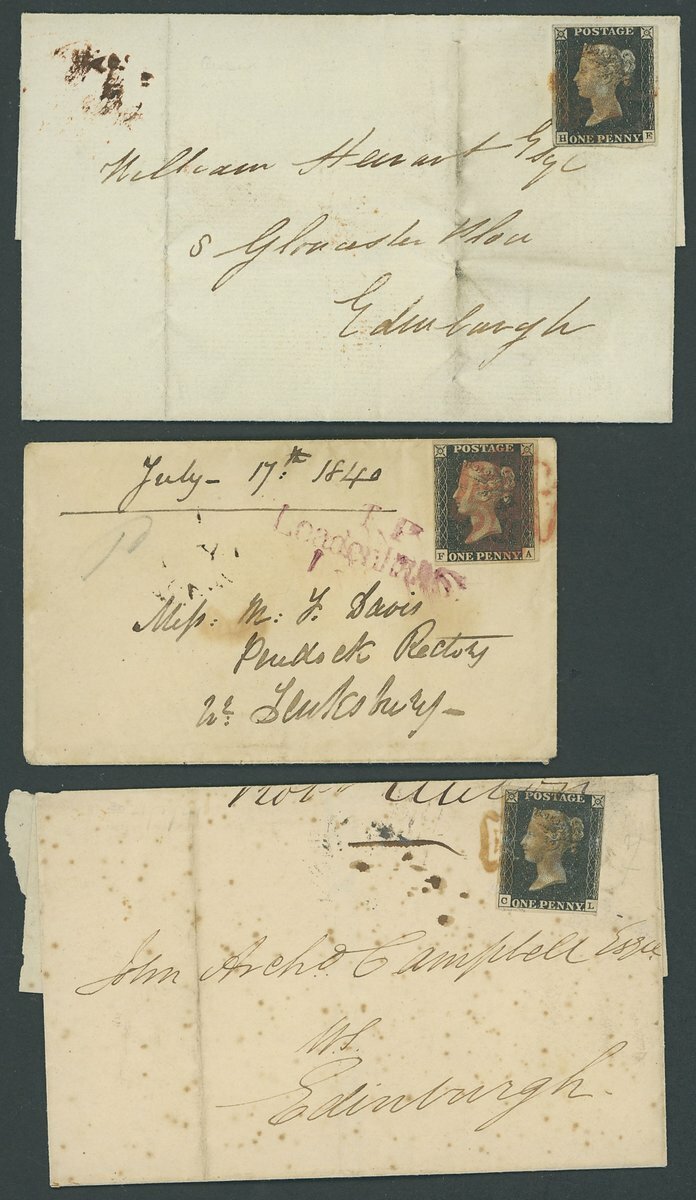 POSTAGE
H ONE PENNY E
William Stewart Esqr
8 Gloucester Place
Edinburgh
POSTAGE
F ONE PENNY A
July - 17th 1840
T.P
Miss: M: F. Davis
Pendock Rectory
Nr: Teuksbury -
POSTAGE
C ONE PENNY L
John Archd Campbell Esqre
WS.
Edinburgh.